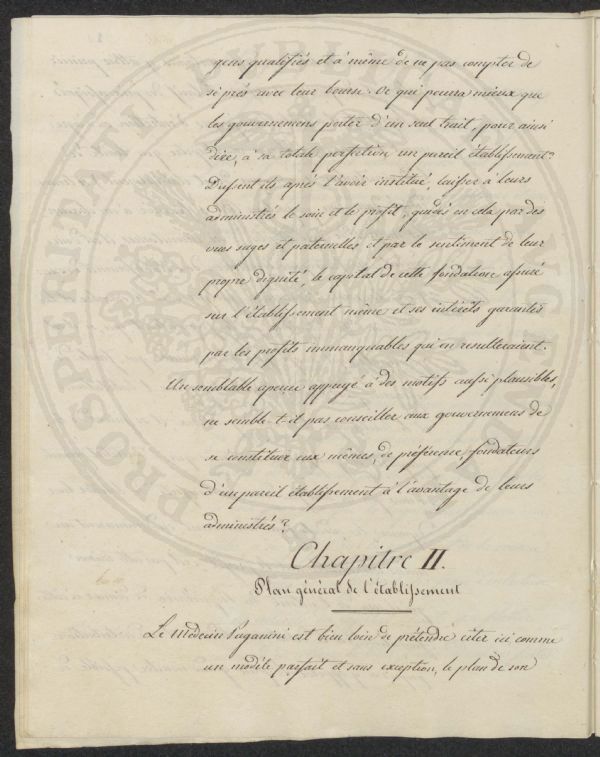 gens qualifiés et à même de ne pas compter de
si près avec leur bourse. Or qui pourra mieux que
les gouvernemens porter d'un seul trait, pour ainsi
dire, à sa totale perfection un pareil établissement?
Dussent ils après l'avoir institué, laisser à leurs
administrés le soin et le profit, guidés en cela par des
vues sages et paternelles et par le sentiment de leur
propre dignité, le capital de cette fondation assuré
sur l'établissement même et ses intérêts garantis
par les profits immanquables qui en resulteraient.
Un semblable aperçu appuyé à des motifs aussi plausibles,
ne semble-t-il pas conseiller aux gouvernemens de
se constituer eux mêmes, de préférence, fondateurs
d'un pareil établissement à l'avantage de leurs
administrés?
Chapitre II.
Plan général de l'établissement
Le Médecin Paganini est bien loin de prétendre citer ici comme
un modèle parfait et sans exception, le plan de son
PROSPERITATI PUBLICAE